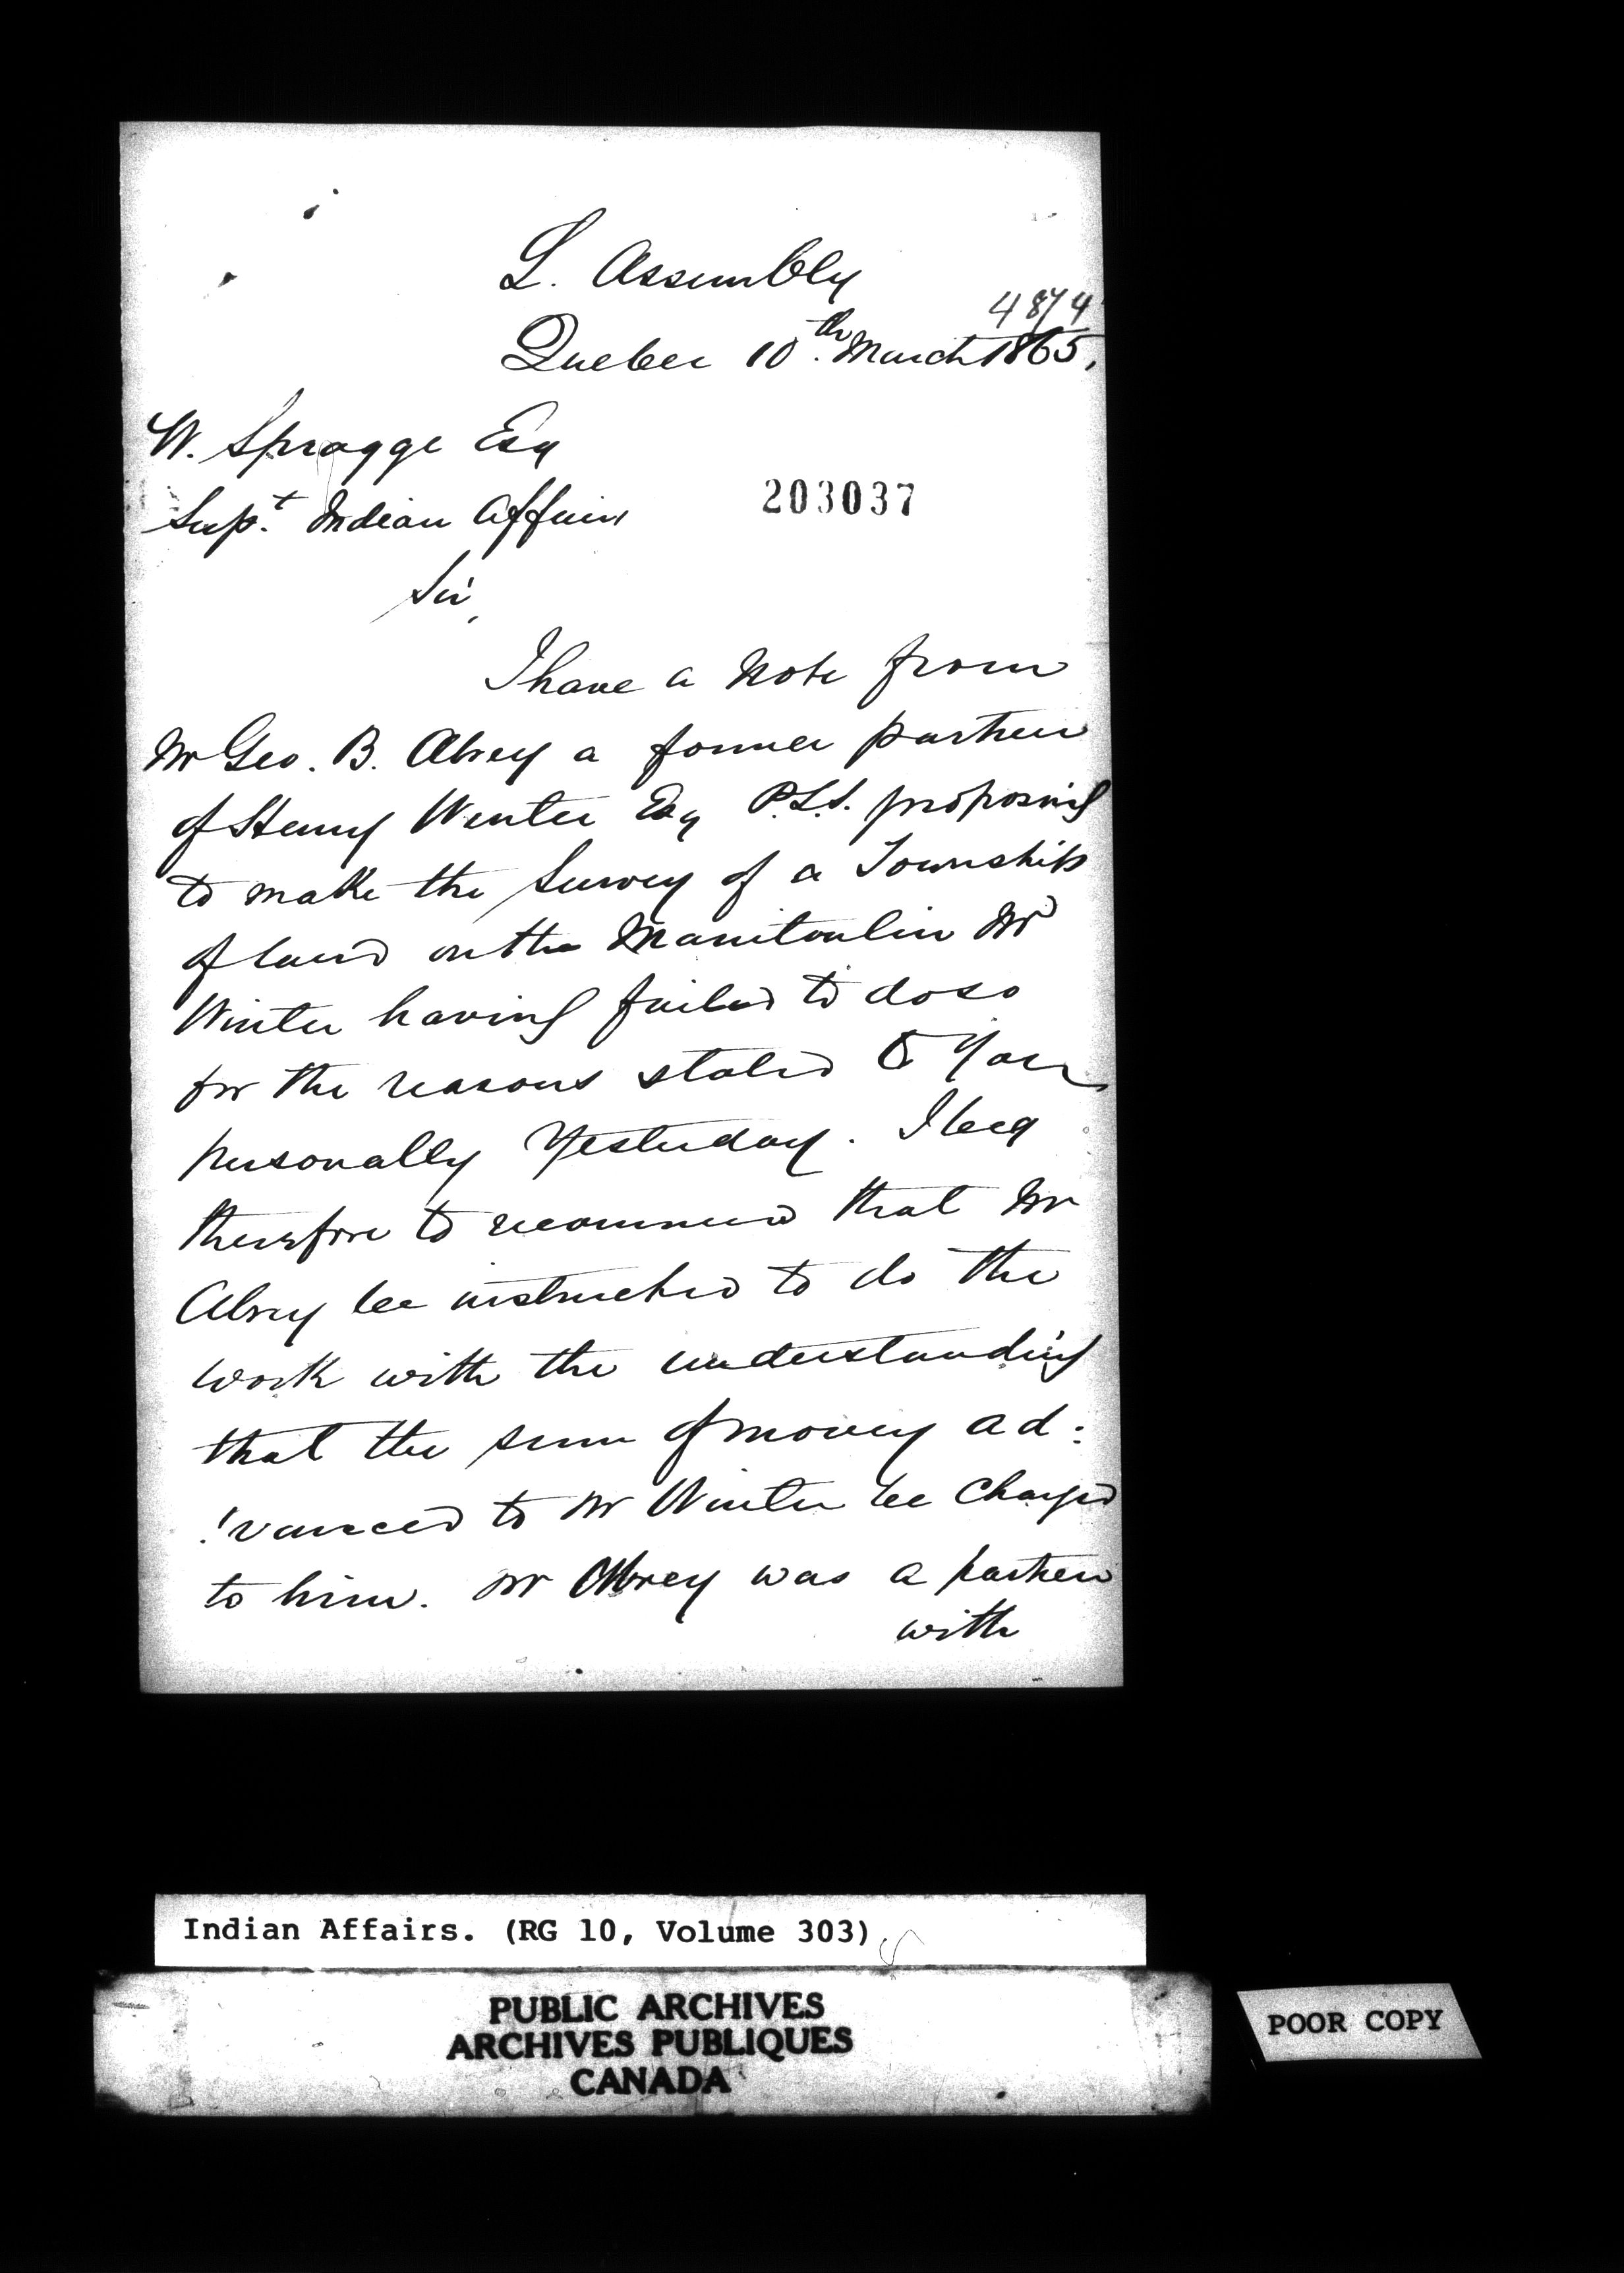 L. Assembly
4874
Quebec 10th. March 1865,
W. Spragge Esq
Supt. Indian Affairs
203037
Sir,
I have a Note from
Mr Geo. B. Abrey a former partner
of Henry Winter Esq P.L.S. proposing
to make the Survey of a Township
of land on the Manitoulin Mr
Winter having failed to do so
for the reasons stated to you
personally Yesterday. I beg
therefore to recommend that Mr
Abrey be instructed to do the
work with the understanding
that the sum of money ad:
:vanced to Mr Winter be charged
to him. Mr Abrey was a partner
with
Indian Affairs. (RG 10, Volume 303)
PUBLIC ARCHIVES
ARCHIVES PUBLIQUES
CANADA
POOR COPY